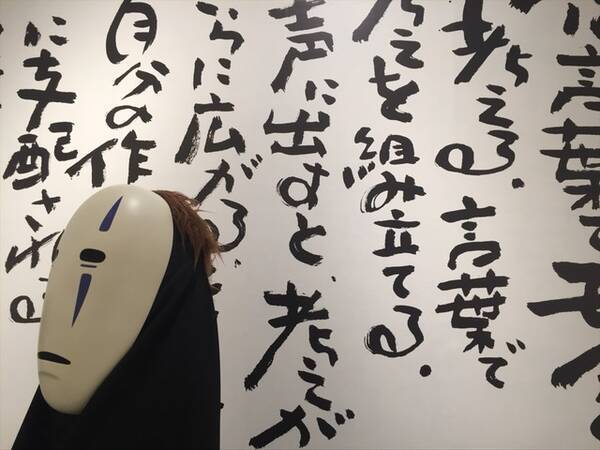 に言葉で
考える。言葉で
考えを組み立てる。
声に出すと、考えが
らに広がる。
自分の作
に支配される